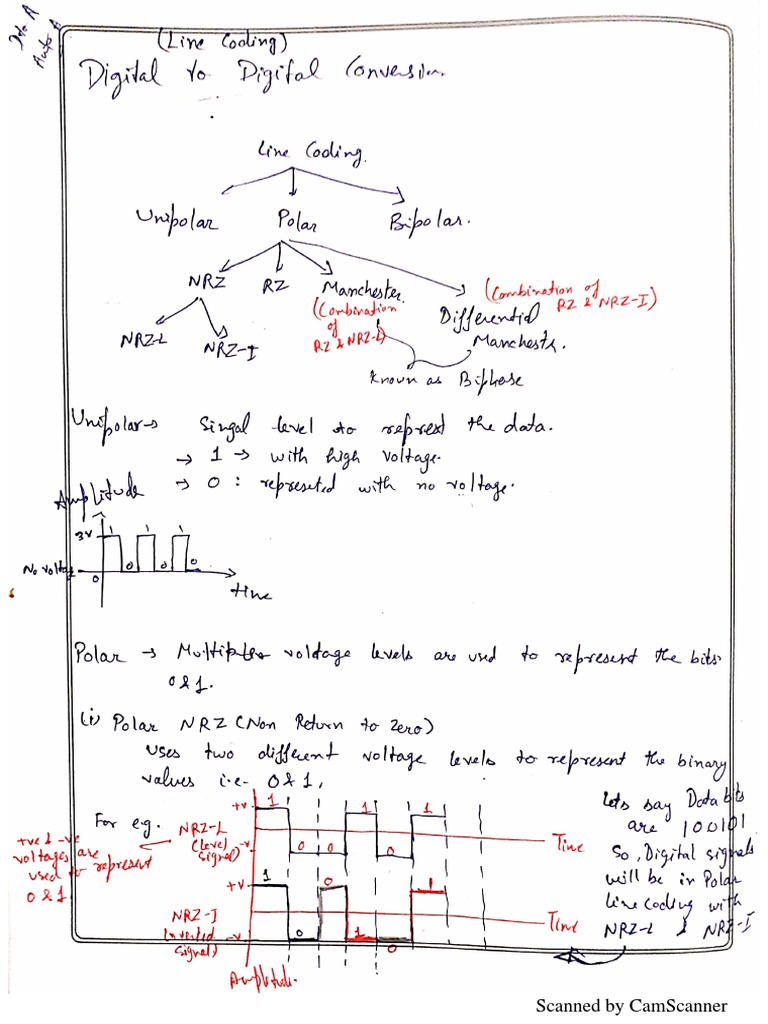 (Line Coding)
Digital to Digital Conversion
Line Coding.
Unipolar Polar Bipolar.
NRZ RZ Manchester
(Combination of RZ & NRZ-L)
Differential Manchestr.
(Combination of RZ & NRZ-I)
NRZ-L NRZ-I
Known as Biphase
Unipolar → Singal level to represt the data.
→ 1 → with high voltage.
→ 0 : represeted with no voltage.
Amplitude
3v 1 1 1
No voltag 0 0 0 0
time
Polar → Multiples voltage levels are used to represent the bits
0 & 1.
(i) Polar NRZ (Non Return to Zero)
uses two different voltage levels to represent the binary
values i.e. 0 & 1,
For e.g.
+ve & -ve
voltages are
used to represent
0 & 1
NRZ-L
(Level
Signal)
+v 1 1 1
-v 0 0 0
Time
+v 1 0 1
NRZ-I
Inverted
Signal)
-v 0 1 0
Time
Amplitude.
Lets say Data bits
are 100101
So, Digital signals
will be in Polar
line coding with
NRZ-L & NRZ-I
Scanned by CamScanner